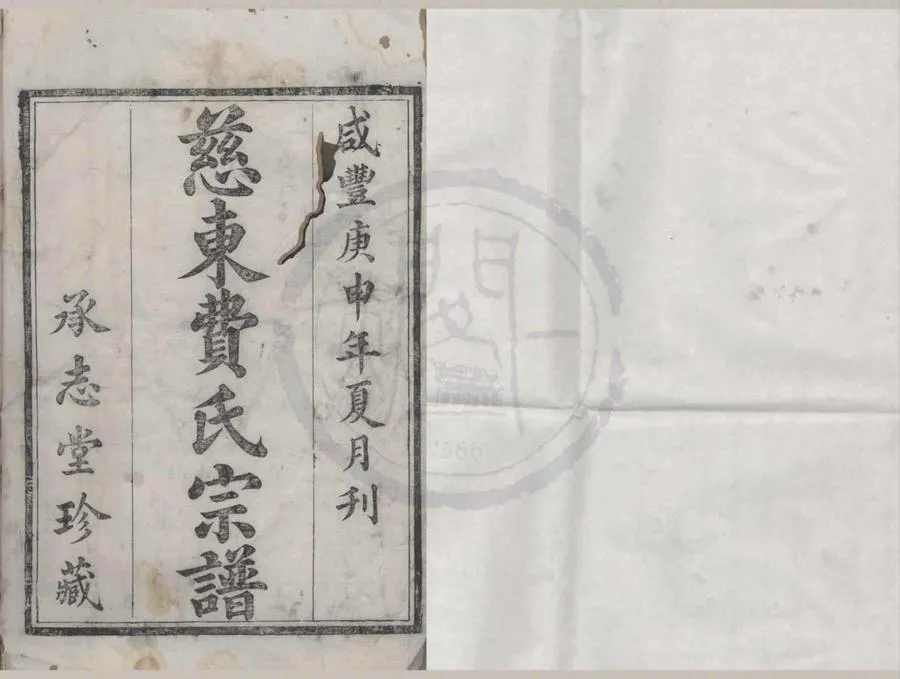 咸豐庚申年夏月刋
慈東費氏宗譜
承志堂珍藏
1566